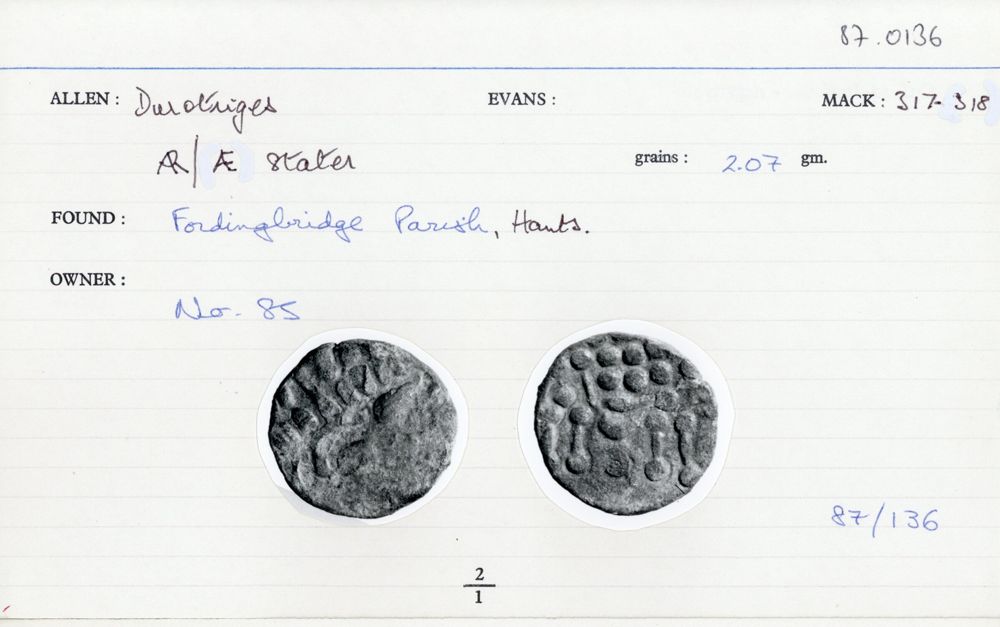 87.0136
ALLEN: Durotriges EVANS: MACK: 317-318
AR/Æ Stater grains: 2.07 gm.
FOUND: Fordingbridge Parish, Hants.
OWNER:
No. 85
87/136
2
1